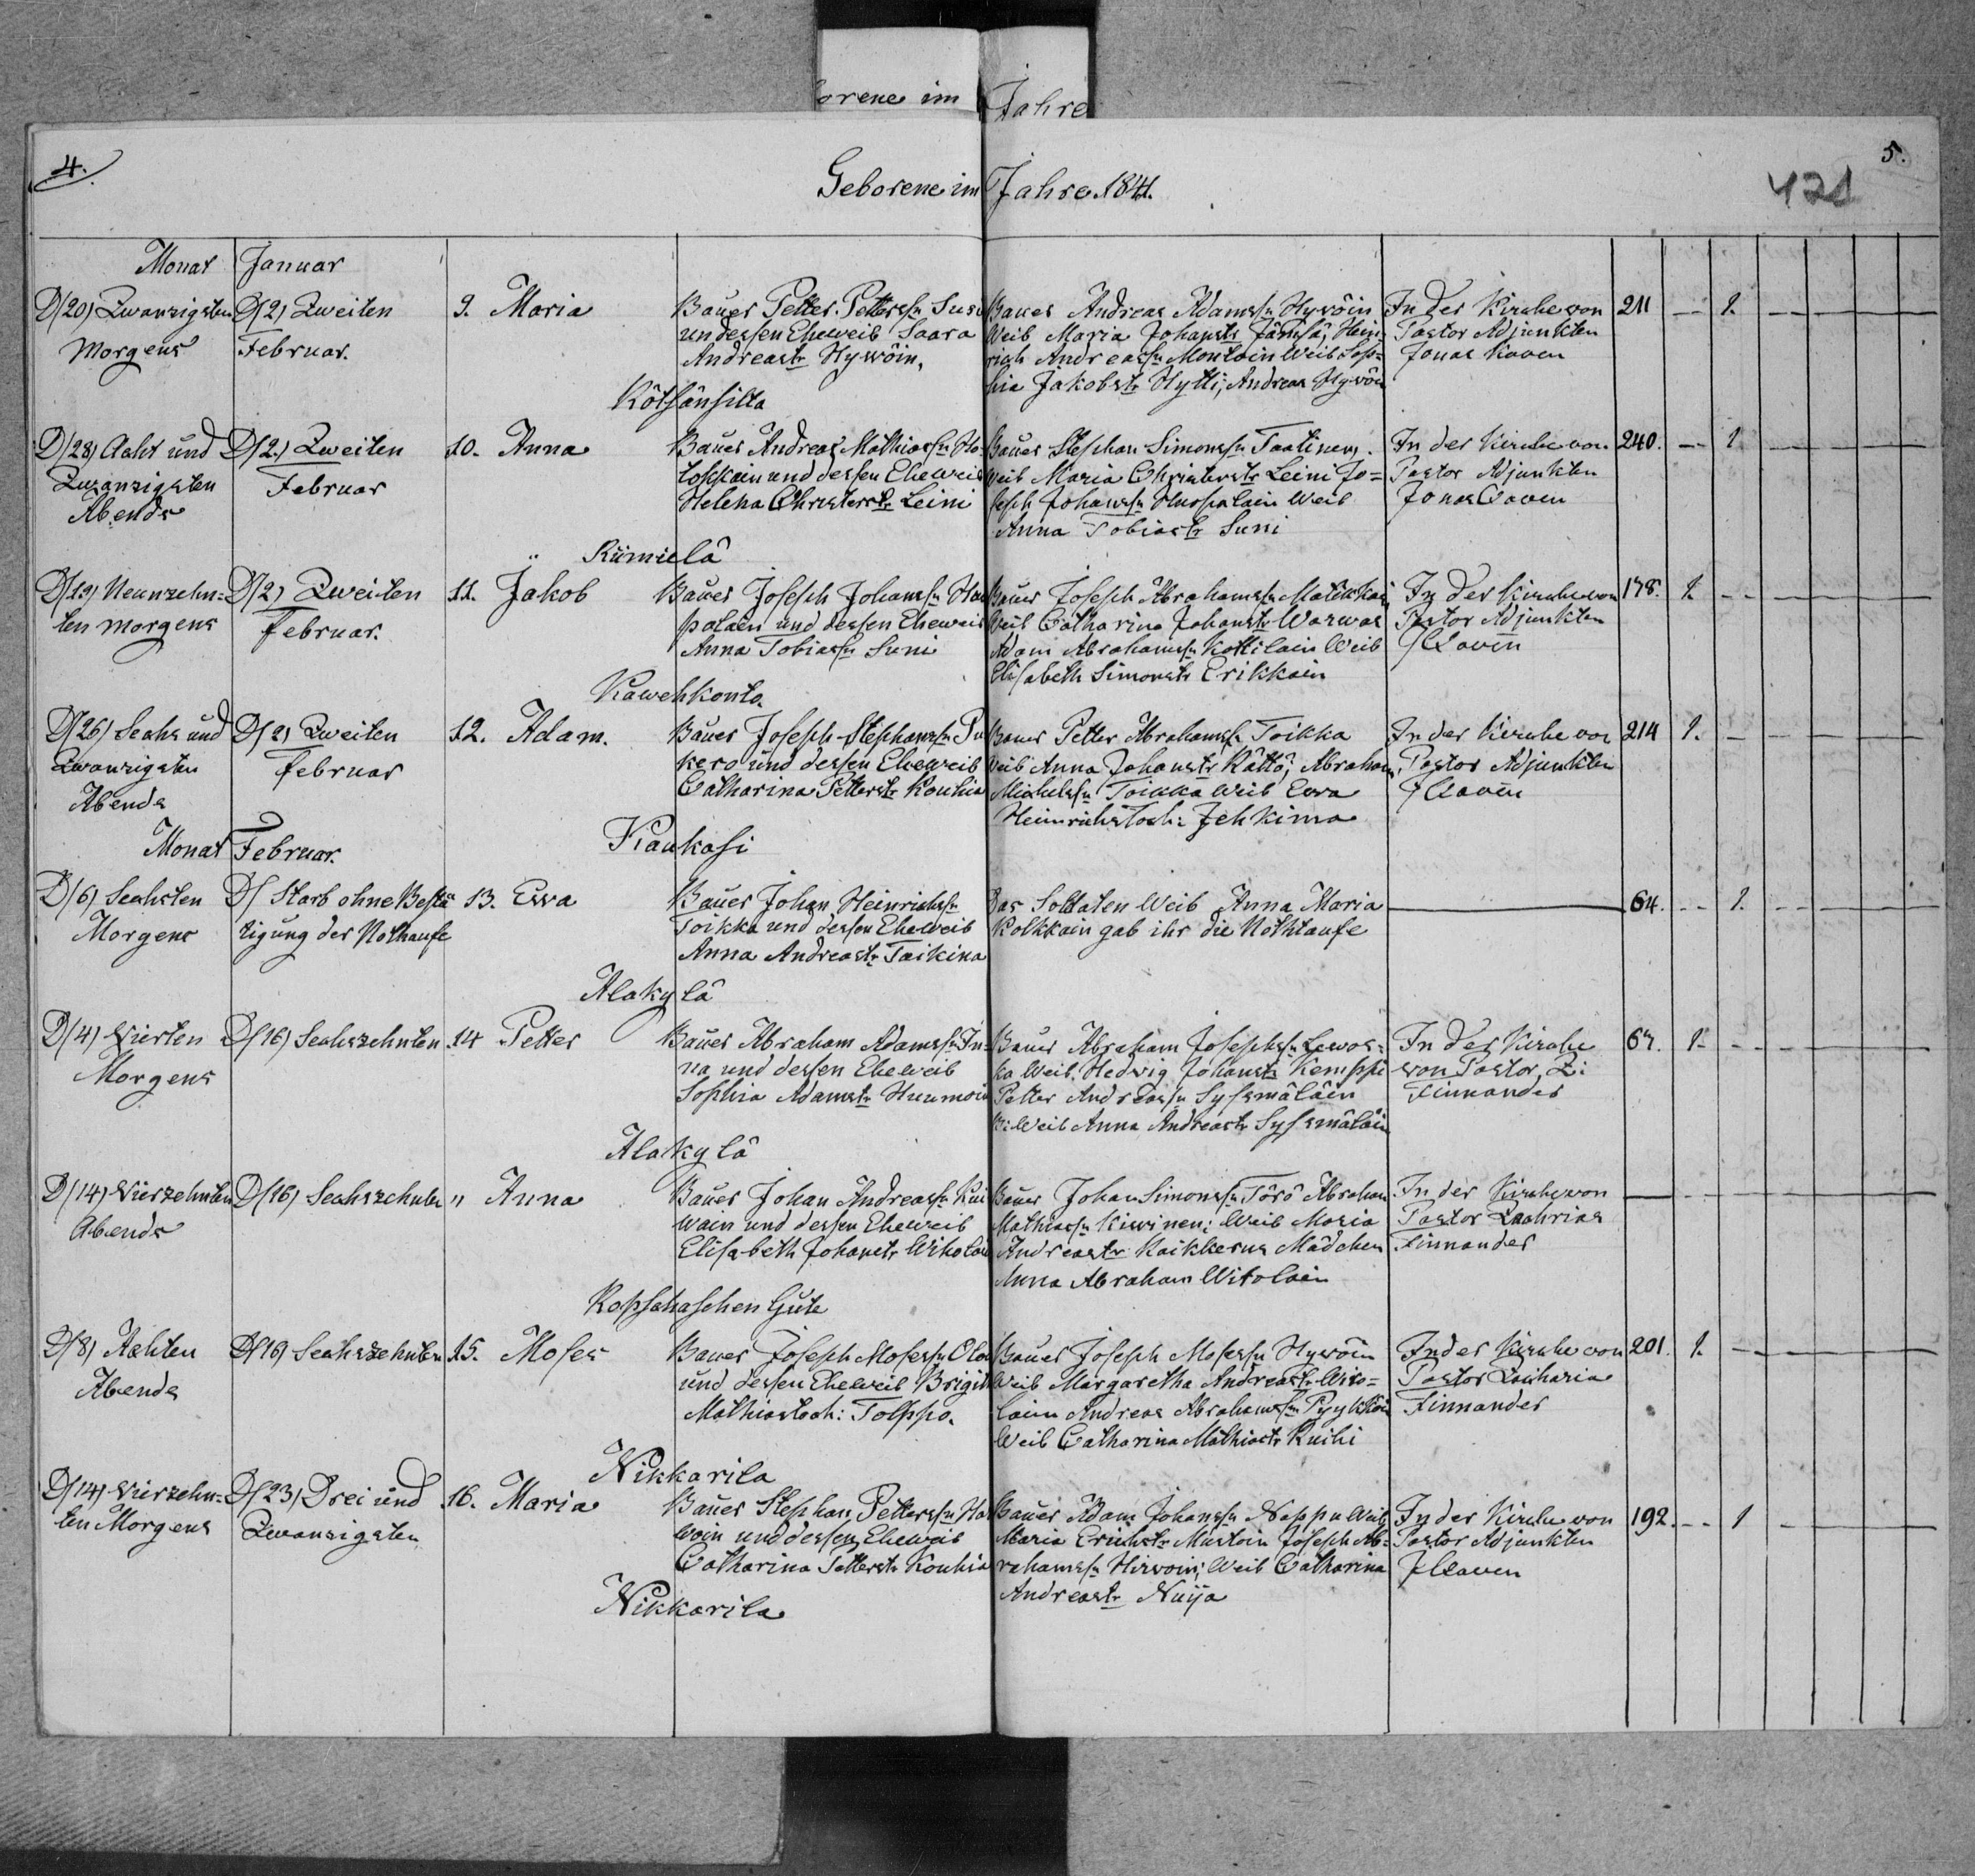 orene im Jahre
4.
5.
Geborene im Jahre 1841.
421
Monat Januar
D(20) Zwanzigsten
Morgens
D(2) Zweiten
Februar.
9. Maria
Bauer Petter Petterssn Susi
und essen Eheweib Saara
Andreastr Hyvöin,
Bauer Andreas Adamssn Hyvöin
Weib Maria Johanstr Jämsä, Hein-
rich Andreassn Montoin Weib Sop=
hia Jakobstr Hytti; Andreas Hyvöin
In der Kirche von
Pastor Adjunkten
Jonas Caven
211 — 1. — — — —
Kötsänsilta
D(28) Acht und
Zwanzigsten
Abends
D(2.) Zweiten
Februar
10. Anna
Bauer Andreas Mathiassn Ho-
toppain und dessen Eheweib
Helena Christerstr Leini
Bauer Stephan Simonssn Taatinen.
Weib Maria Christerstr Leini Jo=
seph Johanssn Huopalain Weib
Anna Tobiastr Suni
In der Kirche von
Pastor Adjunkten
Jonas Caven
240. — 1 — — — —
Riimielä
D(19) Neunzehn=
ten morgens
D(2) Zweiten
Februar.
11. Jakob
Bauer Joseph Johanssn Huo
palain und dessen Eheweib
Anna Tobiassn Suni
Bauer Joseph Abrahamssn Matikkain
Weib Catharina Johanstr Warwas
Adam Abrahamssn Kottilain Weib
Elisabeth Simonstr Erikkain
In der Kirche von
Pastor Adjunkten
J Caven
178. 1. — — — — —
Kawehkonto
D(26) Sechs und
Zwanzigsten
Abends
D(2) Zweiten
Februar
12. Adam.
Bauer Joseph Stephanssn Pu
kero und dessen Eheweib
Catharina Petterstr Kouhia
Bauer Petter Abrahamssn Toikka
Weib Anna Johanstr Rättö; Abraham
Michelssn Toikka Weib Ewa
Heinrichstoch: Jehkima
In der Kirche von
Pastor Adjunkten
J Caven
214 1. — — — — —
Kaukasi
Monat Februar.
D(6) Sechsten
Morgens
D( Starb ohne Bestä
tigung der Nothaufe
13. Ewa
Bauer Johan Heinrichssn
Toikka und dessen Eheweib
Anna Andreastr Taikina
Das Soldaten Weib Anna Maria
Kolkkain gab ihr die Nothtaufe
64. — 1. — — — —
Alakylä
D(4) Vierten
Morgens
D(16) Sechszehnten
14 Petter
Bauer Abraham Adamssn In-
na und dessen Eheweib
Sophia Adamstr Huumoin
Bauer Abraham Josephssn Lewos=
ka Weib. Hedwig Johanstr Kemppi
Petter Andreassn Syssmäläin
Weib Anna Andreastr Syssmäläin
In der Kirche
von Pastor Z:
Finnander
67. 1 — — — — —
Alakylä
D(14) Vierzehnten
Abends
D(16) Sechszehnten
" Anna
Bauer Johan Andreassn Kui
wain und dessen Eheweib
Elisabeth Johanstr Wikolai
Bauer Johan Simonssn Törö Abraham
Mathiassn Kiwinen; Weib Maria
Andreastr Kaikkerus Mädchen
Anna Abraham Witolain
In der Kirche von
Pastor Zachrias
Finnander
— — — — — — —
Kopschaschen Gute
D(8) Achten
Abends
D(16) Sechszehnten
15. Moses
Bauer Joseph Mosessn Olo
und dessen Eheweib Brigit
Mathiastoch: Tolppo.
Bauer Joseph Mosessn Hyvöin
Weib Margaretha Andreastr Wiro=
lain Andreas Abrahamssn Pyykköin
Weib Catharina Mathiastr Ruihi
In der Kirche von
Pastor Zacharia
Finnander
201. 1. — — — — —
Nikkarila
D(14) Vierzehn=
ten Morgens
D(23) Drei und
Zwanzigsten
16. Maria
Bauer Stephan Petterssn Ho
woin und dessen Eheweib
Catharina Petterstr Kouhia
Bauer Adam Johanssn Nappu Weib
Maria Erichstr Mustoin Joseph Ab=
rahamssn Hirvoin; Weib Catharina
Andreastr Nuija
In der Kirche von
Pastor Adjunkten
J Caven
192. — 1 — — — —
Nikkarila